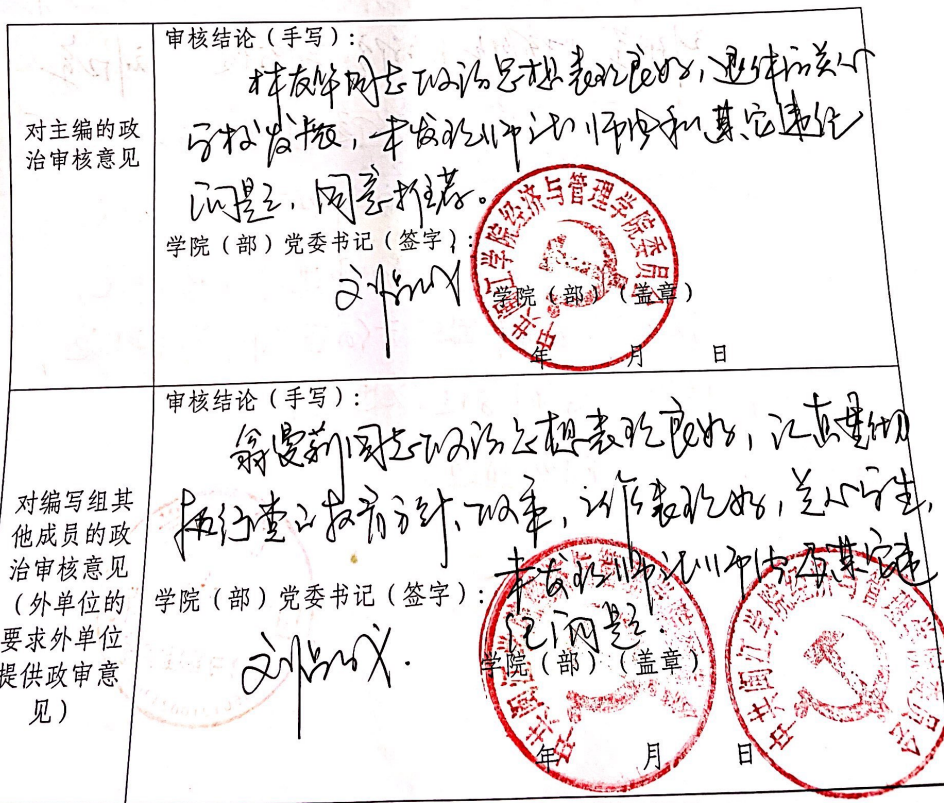 对主编的政
治审核意见
审核结论（手写）：
林友华同志政治思想表现良好，退休前关心
学校发展，未发现师德师风和其它违纪
问题，同意推荐。
学院（部）党委书记（签字）：
中共闽江学院经济与管理学院委员会
学院（部）（盖章）
年 月 日
对编写组其
他成员的政
治审核意见
（外单位的
要求外单位
提供政审意
见）
审核结论（手写）：
翁曼莉同志政治思想表现良好，认真贯彻
执行党的教育方针、政策，工作表现好，关心学生，
未发现师德师风及其它违
纪问题.
学院（部）党委书记（签字）：
学院（部）（盖章）
中共闽江学院经济与管理学院委员会
中共闽江学院经济与管理学院委员会
年 月 日